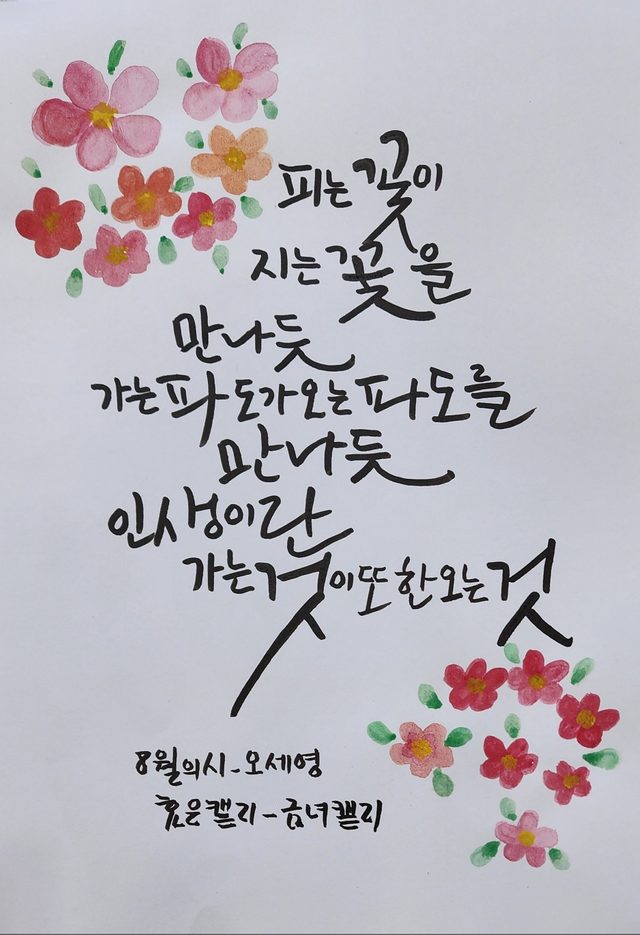 피는 꽃이
지는 꽃을
만나듯
가는 파도가 오는 파도를
만나듯
인생이란
가는 것이 또한 오는 것
8월의시-오세영
캘리-금녀캘리